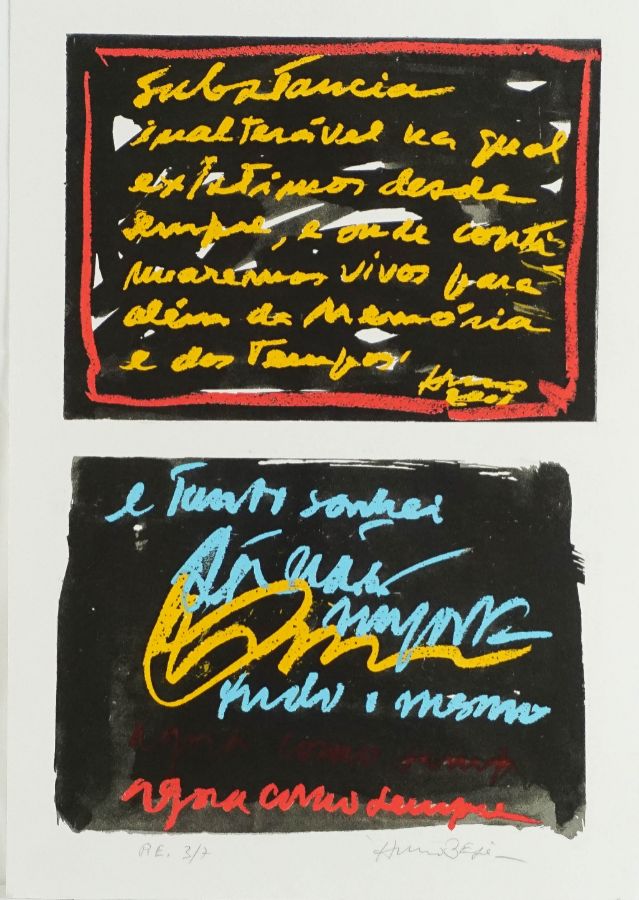 substância
inalterável na qual
existimos desde
sempre, e onde conti
nuaremos vivos para
além da Memória
e dos Tempos,
2001
e Tanto sonhei
não
importa
tudo o mesmo
agora como sempre
agora como sempre
P.E. 3/7